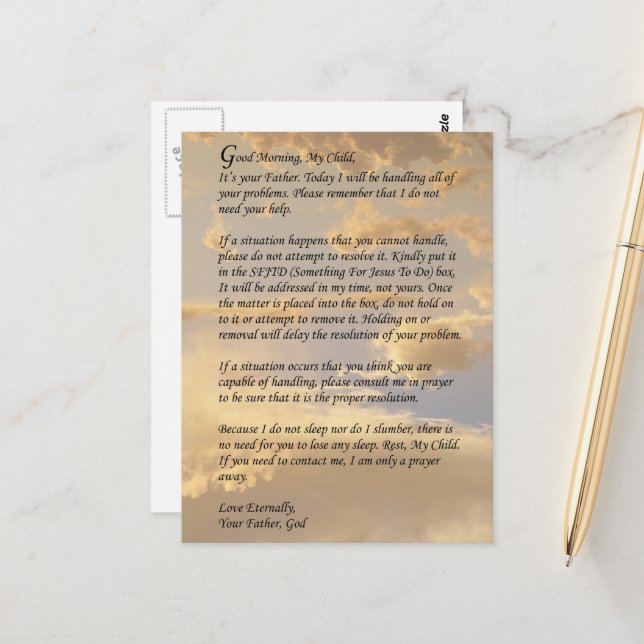 Good Morning, My Child,
It's your Father. Today I will be handling all of
your problems. Please remember that I do not
need your help.
If a situation happens that you cannot handle,
please do not attempt to resolve it. Kindly put it
in the SFJTD (Something For Jesus To Do) box.
It will be addressed in my time, not yours. Once
the matter is placed into the box, do not hold on
to it or attempt to remove it. Holding on or
removal will delay the resolution of your problem.
If a situation occurs that you think you are
capable of handling, please consult me in prayer
to be sure that it is the proper resolution.
Because I do not sleep nor do I slumber, there is
no need for you to lose any sleep. Rest, My Child.
If you need to contact me, I am only a prayer
away.
Love Eternally,
Your Father, God